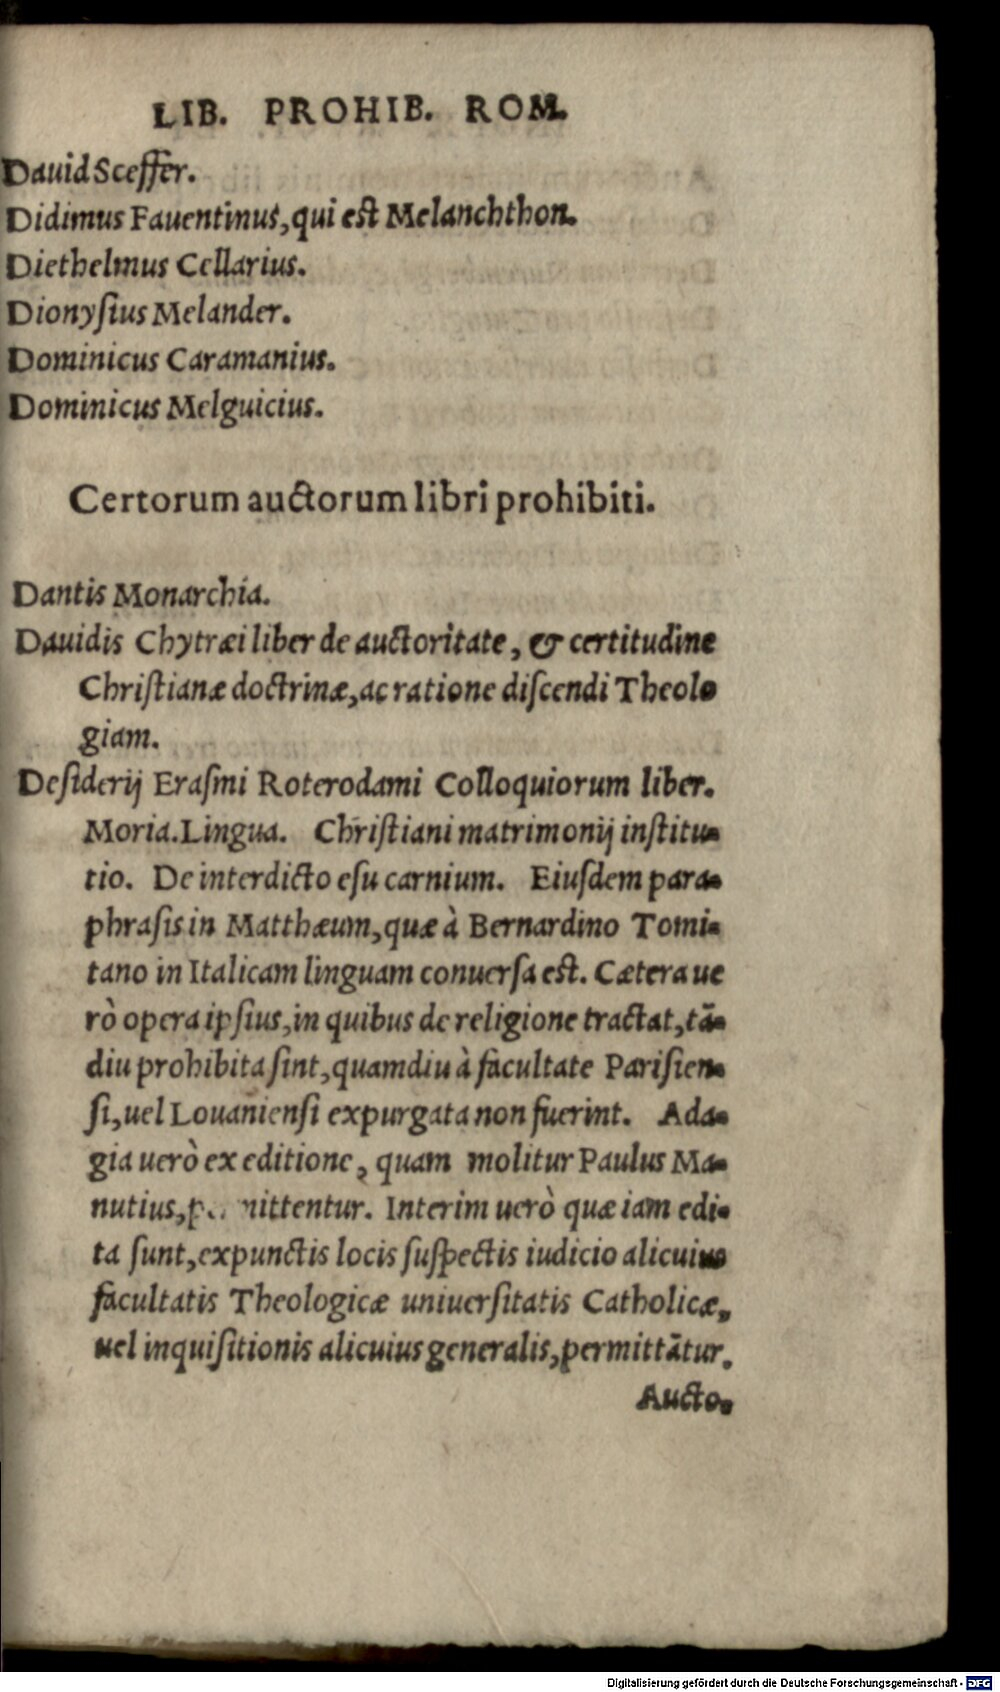 LIB. PROHIB. ROM.
Dauid Sceffer.
Didimus Fauentinus, qui est Melanchthon.
Diethelmus Cellarius.
Dionyſius Melander.
Dominicus Caramanius.
Dominicus Melguicius.
Certorum auctorum libri prohibiti.
Dantis Monarchia.
Dauidis Chytræi liber de auctoritate, & certitudine
Chriſtianæ doctrinæ, ac ratione diſcendi Theolo
giam.
Deſiderij Eraſmi Roterodami Colloquiorum liber.
Moria. Lingua. Chriſtiani matrimonij inſtitu-
tio. De interdicto eſu carnium. Eiuſdem para-
phraſis in Matthæum, quæ à Bernardino Tomi-
tano in Italicam linguam conuerſa eſt. Cætera ue
rò opera ipſius, in quibus de religione tractat, tā-
diu prohibita ſint, quamdiu à facultate Pariſien-
ſi, uel Louanienſi expurgata non fuerint. Ada-
gia uerò ex editione, quam molitur Paulus Ma-
nutius, p.. mittentur. Interim uerò quæ iam edi-
ta ſunt, expunctis locis ſuſpectis iudicio alicuius
facultatis Theologicæ uniuerſitatis Catholicæ,
uel inquiſitionis alicuius generalis, permittātur.
Aucto-
Digitalisierung gefördert durch die Deutsche Forschungsgemeinschaft - DFG